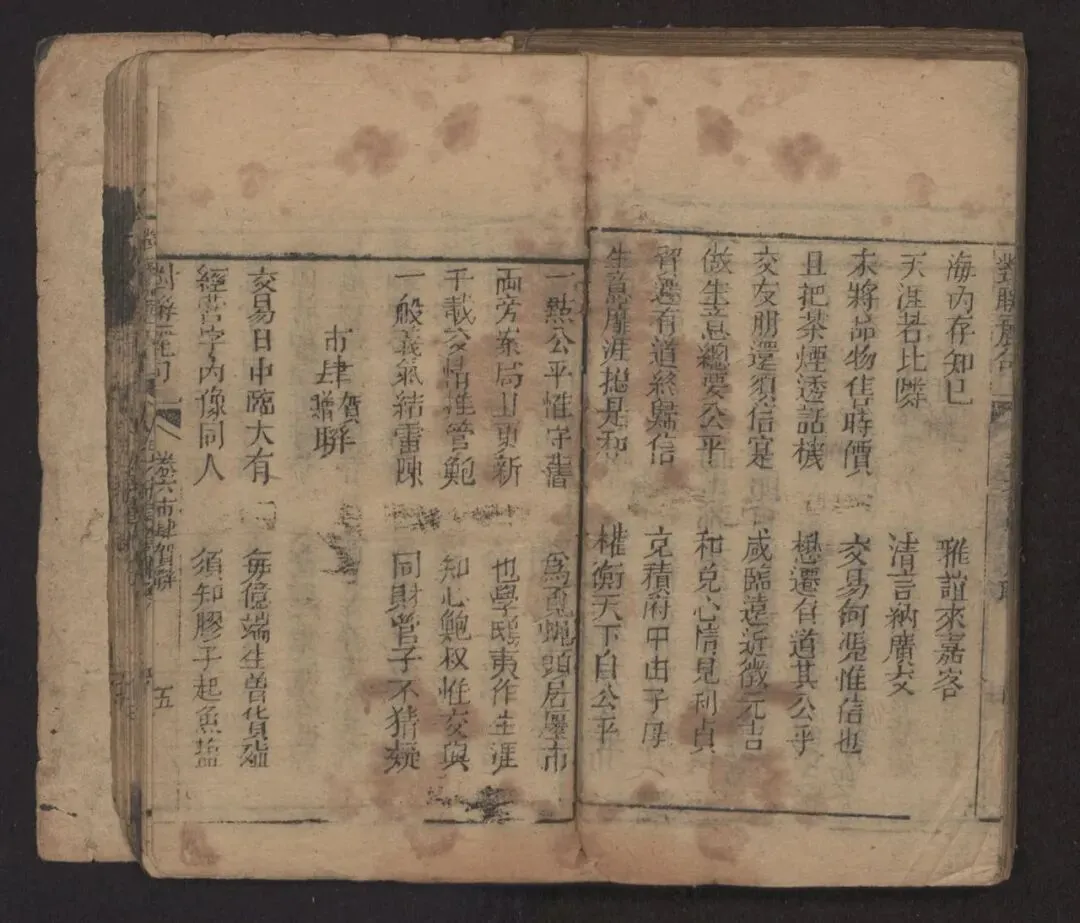 海内存知己
雅誼來嘉客
天涯若比隣
清言納廣交
未將品物售時價
交易何凴惟信也
且把茶煙透話機
想遷自道其公乎
交友朋還須信寔
咸臨遠近徵元吉
做生意總要公平
和兌心情見利貞
貿遷有道終歸信
克積府中由子母
生意靡涯揔是和
權衡天下自公平
一㸃公平惟守舊
為覓蠅頭居廛市
両旁案局且更新
也學鴟夷作生涯
千載交情惟管鮑
知心鮑叔惟交與
一般義氣結雷陳
同財管子不猜疑
市肆賀贈聯
交易日中臨大有
毎億端生曽貨殖
經書字內像同人
須知膠子起魚塩
卷六市肆賀聯
五